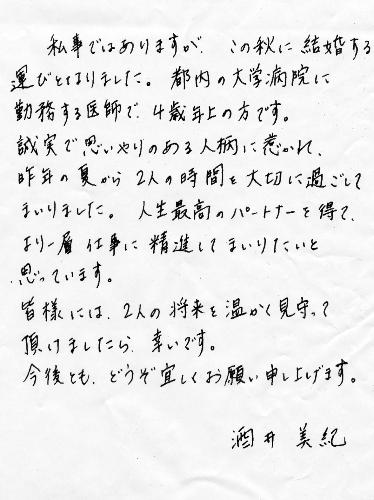 私事ではありますが、この秋に結婚する
運びとなりました。都内の大学病院に
勤務する医師で、4歳年上の方です。
誠実で思いやりのある人柄に惹かれ、
昨年の夏から2人の時間を大切に過ごして
まいりました。人生最高のパートナーを得て、
より一層仕事に精進してまいりたいと
思っています。
皆様には、2人の将来を温かく見守って
頂けましたら、幸いです。
今後とも、どうぞ宜しくお願い申し上げます。
酒井 美紀